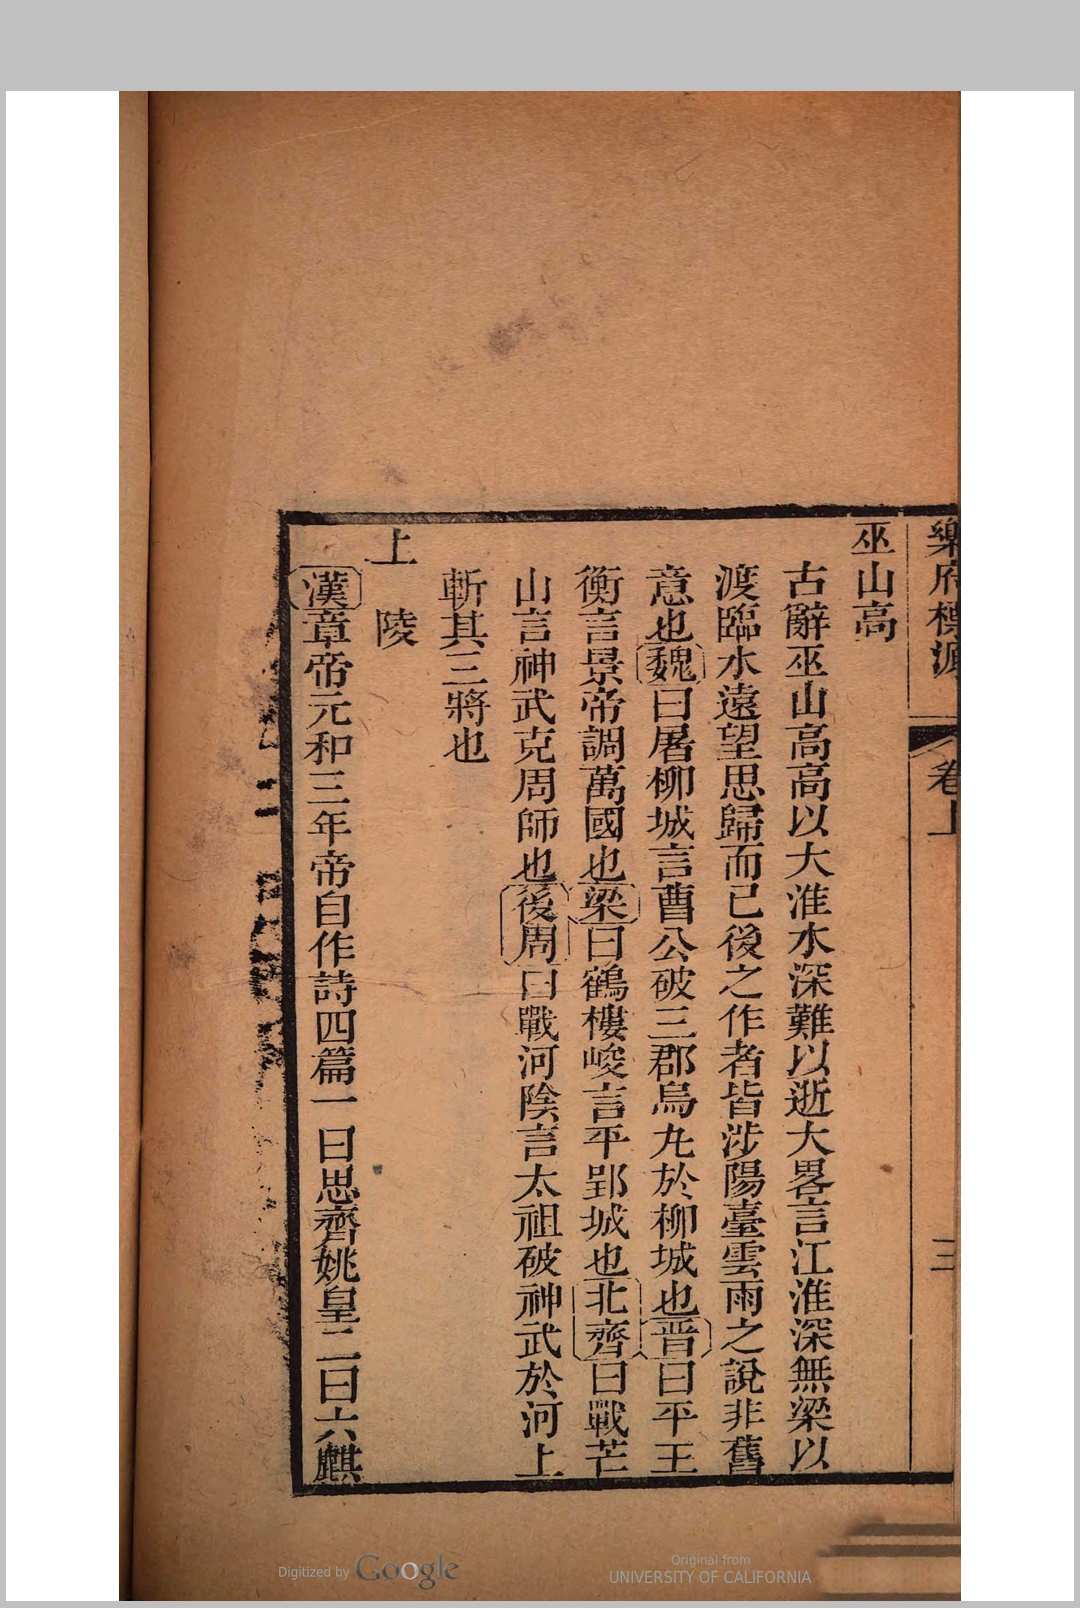 樂府標源
卷上
三
巫山高
古辭巫山高高以大淮水深難以逝大畧言江淮深無梁以
渡臨水遠望思歸而已後之作者皆涉陽臺雲雨之說非舊
意也魏曰屠柳城言曹公破三郡烏丸於柳城也晋曰平王
衡言景帝調萬國也梁曰鶴樓峻言平郢城也北齊曰戰芒
山言神武克周師也後周曰戰河陰言太祖破神武於河上
斬其三將也
上陵
漢章帝元和三年帝自作詩四篇一曰思齊姚皇二曰六麒
Digitized by Google
Original from
UNIVERSITY OF CALIFORNIA